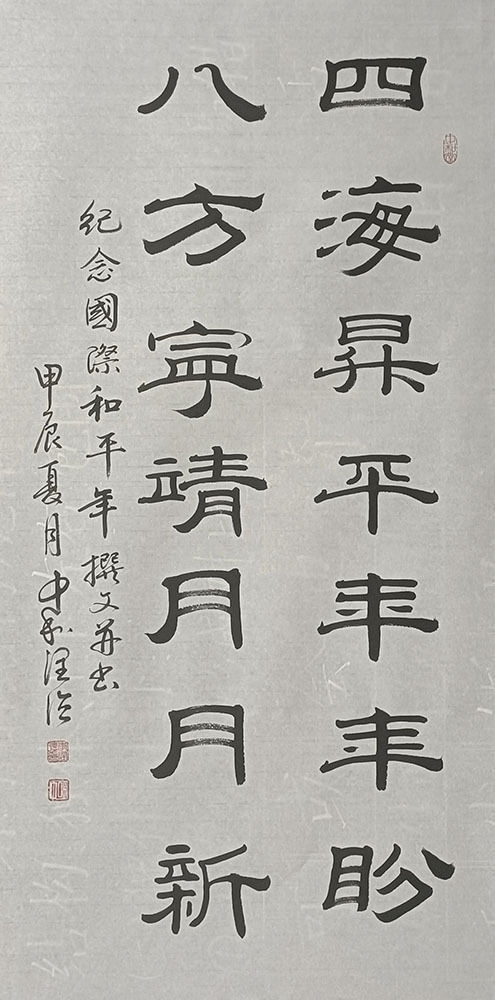 四海昇平年年盼
八方寧靖月月新
紀念國際和平年撰文并书
甲辰夏月中和